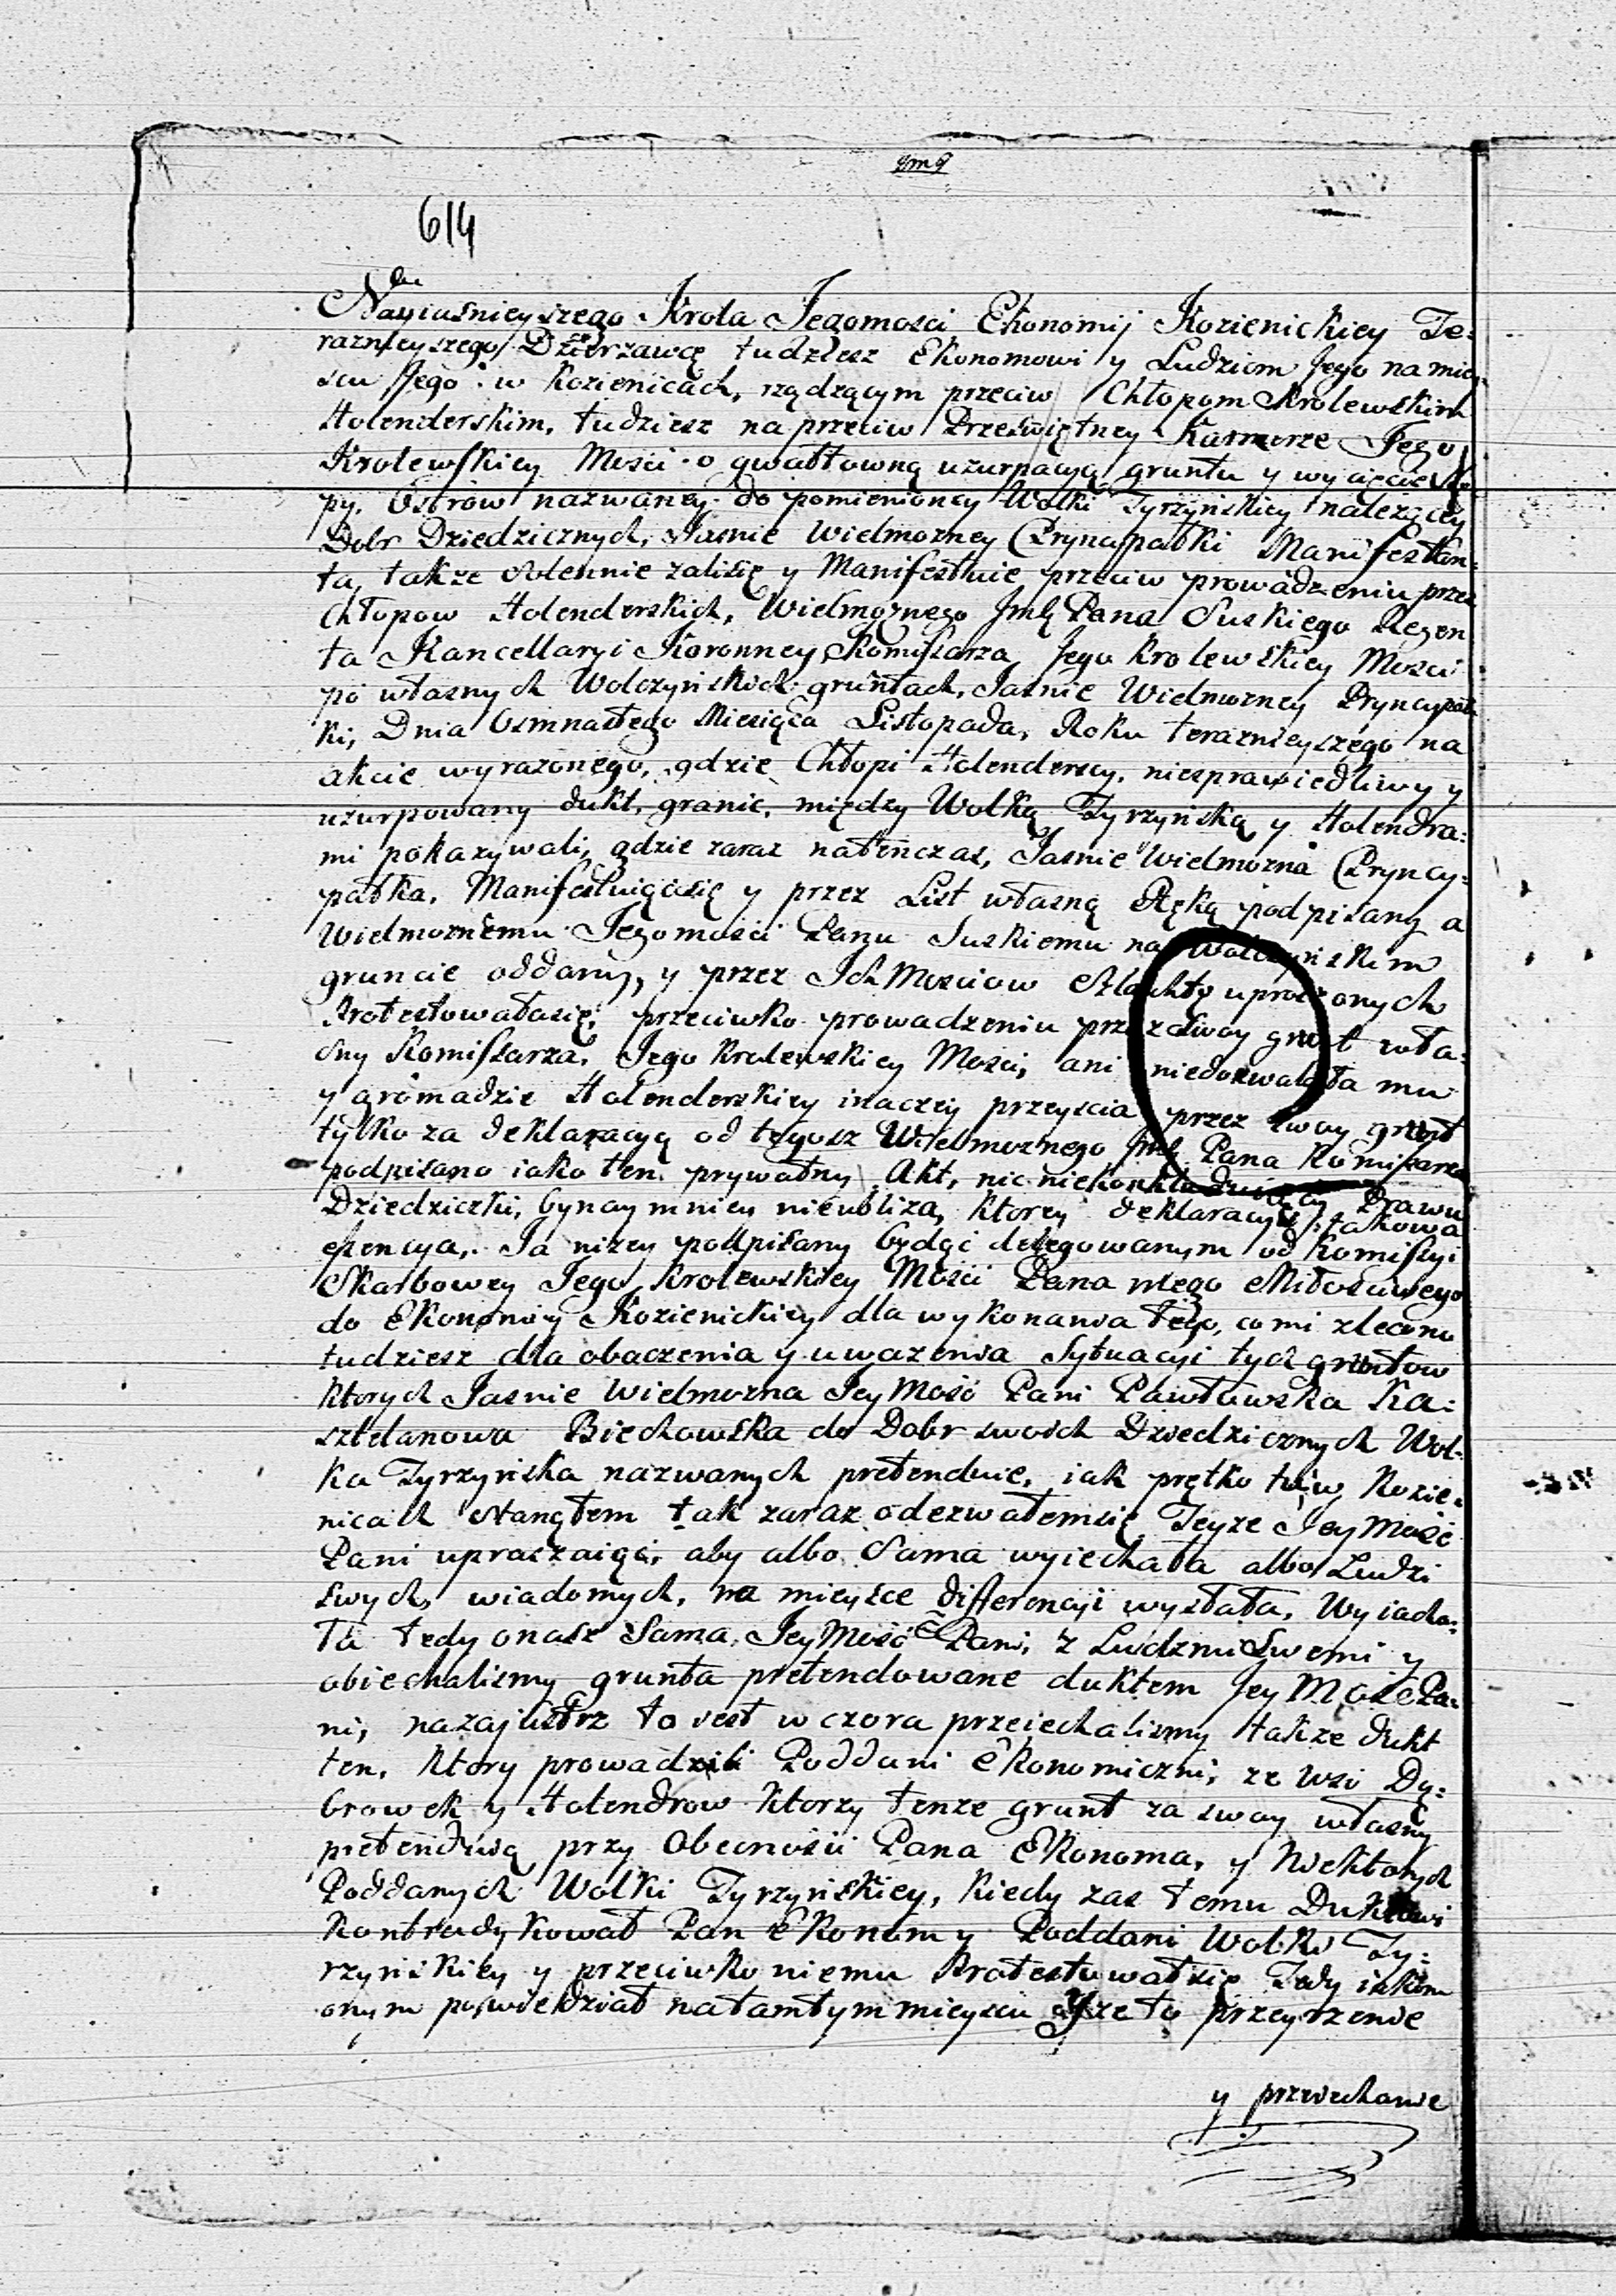 614
Nayiasnieyszego Krola Jegomosci Ekonomij Kozienickiey Te-
raznieyszego Dzierzawcę tudziesz Ekonomowi y Ludziom Jego na miey
scu Jego w Kozienicach, rządzącym przeciw Chłopom Krolewskim
Holenderskim, tudziesz naprzeciw Przeswiętney Kamerze Jego
Krolewskiey Mosci o gwałtowną uzurpacyą gruntu y wycięcie Kę
py, Ostrow nazwaney do pomienioney Wolki Tyrzyńskiey należącey
Dobr Dziedzicznych, Jasnie Wielmozney Pryncypałki Manifestan-
ta, także solennie żalisię y Manifestuie przeciw prowadzeniu przez
Chłopow Holenderskich, Wielmoznego Jmć Pana Suskiego Regen
ta Kancellaryi Koronney Komissarza Jego Krolewskiey Mosci
po własnych Wolczyńskich gruntach, Jasnie Wielmozney Pryncypał
ki, Dnia Osmnastego Miesiąca Listopada, Roku teraznieyszego na
akcie wyrazonego, gdzie Chłopi Holenderscy, niesprawiedliwy y
uzurpowany dukt, granic, między Wolką Tyrzyńską y Holendra-
mi pokazywali, gdzie zaraz natenczas, Jasnie Wielmozna Pryncy-
pałka, Manifestuiącsię y przez List własną Ręką podpisany a
Wielmoznemu Jegomosci Panu Suskiemu na Wolczyńskim
gruncie oddany, y przez Ich Mosciow Szlachtę uproszonych
Protestowałasię, przeciwko prowadzeniu przez swoy grunt wła-
sny Komissarza, Jego Krolewskiey Mosci, ani niedozwalała mu
y gromadzie Holenderskiey inaczey przeyscia przez swoy grunt
tylko za deklaracyą od tegosz Wielmoznego Jmć Pana Komissarza
podpisano iako ten prywatny Akt, nic niekonkluduiący Prawu
Dziedziczki, bynaymniey nieubliza, ktorey deklaracyi takowa
essencya, Ja nizey podpisany będąc delegowanym od Komissyi
Skarbowey Jego Krolewskiey Mosci Pana mego Miłosciwego
do Ekonomiy Kozienickiey dla wykonania tego, co mi zlecono
tudziesz dla obaczenia y uwazenia Sytuacyi tych gruntow
ktorych Jasnie Wielmozna Jey Mość Pani Pawłowska Ka-
sztelanowa Biechowska do Dobr swoich Dziedzicznych Wol-
ka Tyrzyńska nazwanych pretenduie, iak prętko tu w Kozie-
nicach stanąłem tak zaraz odezwałemsię Teyze Jey Mość
Pani upraszaiąc, aby albo Sama wyiechała albo Ludzi
swych, wiadomych, na mieysce differencyi wysłała, Wyiacha-
ła tedy onasz Sama Jey Mość Pani, z Ludzmi Swemi y
obiechalismy grunta pretendowane duktem Jey Mość Pa-
ni, nazajustrz to iest wczora przeiechalismy także dukt
ten, ktory prowadzili Poddani Ekonomiczni, ze Wsi Dą-
browek y Holendrow ktorzy tenze grunt za swoy własny
pretenduią przy Obecnosci Pana Ekonoma, y Niektorych
Poddanych Wolki Tyrzyńskiey, kiedy zas temu Duktowi
kontradykował Pan Ekonom y Poddani Wolki Ty-
rzyńskiey y przeciwko niemu Protestowałsię Tedy iakem
onym powiedział na tamtym mieyscu Yze to przeyrzenie
y przeiechanie